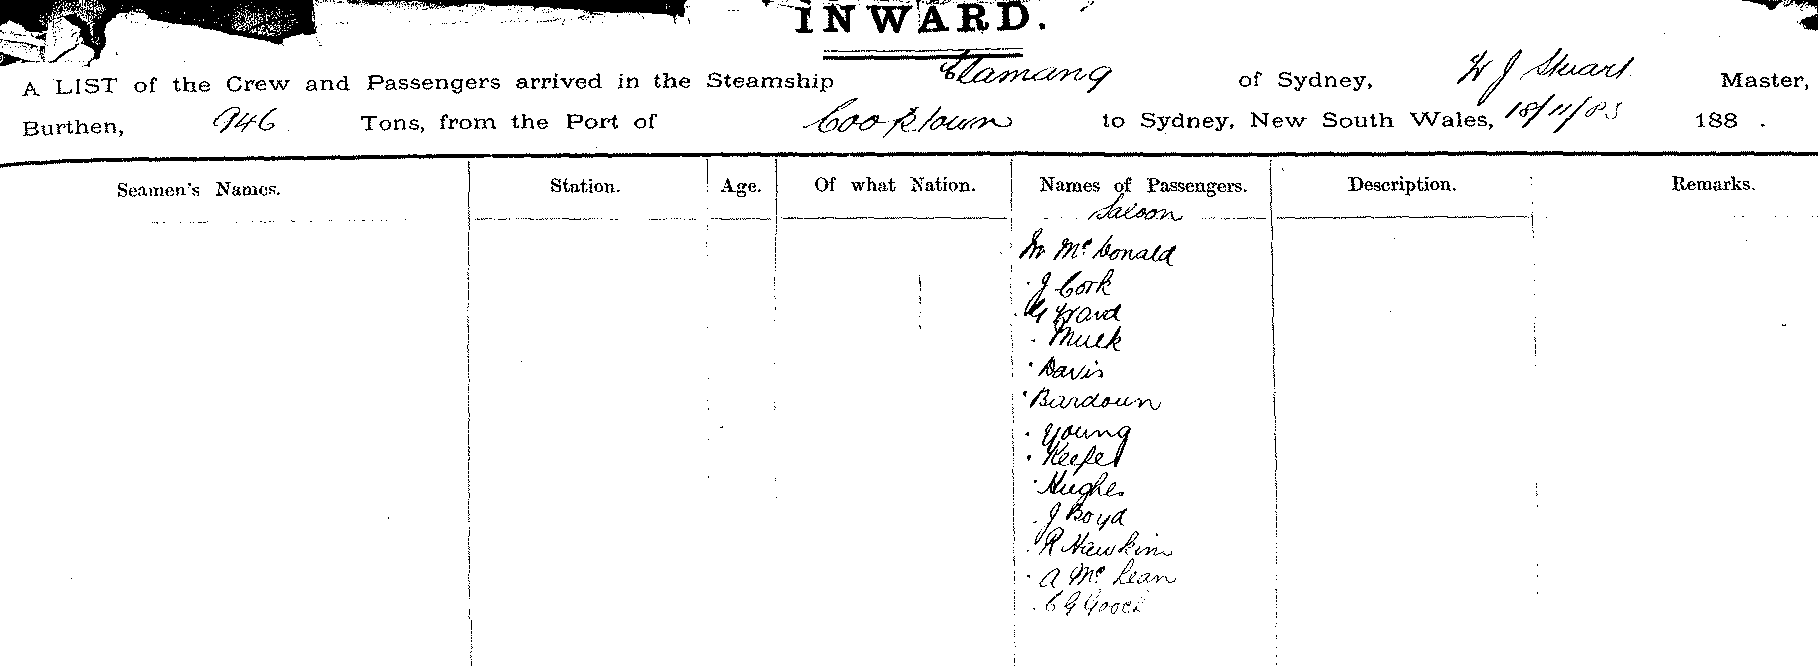 INWARD.
A LIST of the Crew and Passengers arrived in the Steamship Elamang of Sydney, W J Stuart Master,
Burthen, 946 Tons, from the Port of Cooktown to Sydney, New South Wales, 18/11/85 188 .
Seamen's Names. Station. Age. Of what Nation. Names of Passengers. Description. Remarks.
Saloon
Mr McDonald
" J Cork
" G Ward
" Davis
" Bardoun
" Young
" Keefe
" Hughes
" J Boyd
" R Hawkins
" A McLean
" C G Gooch